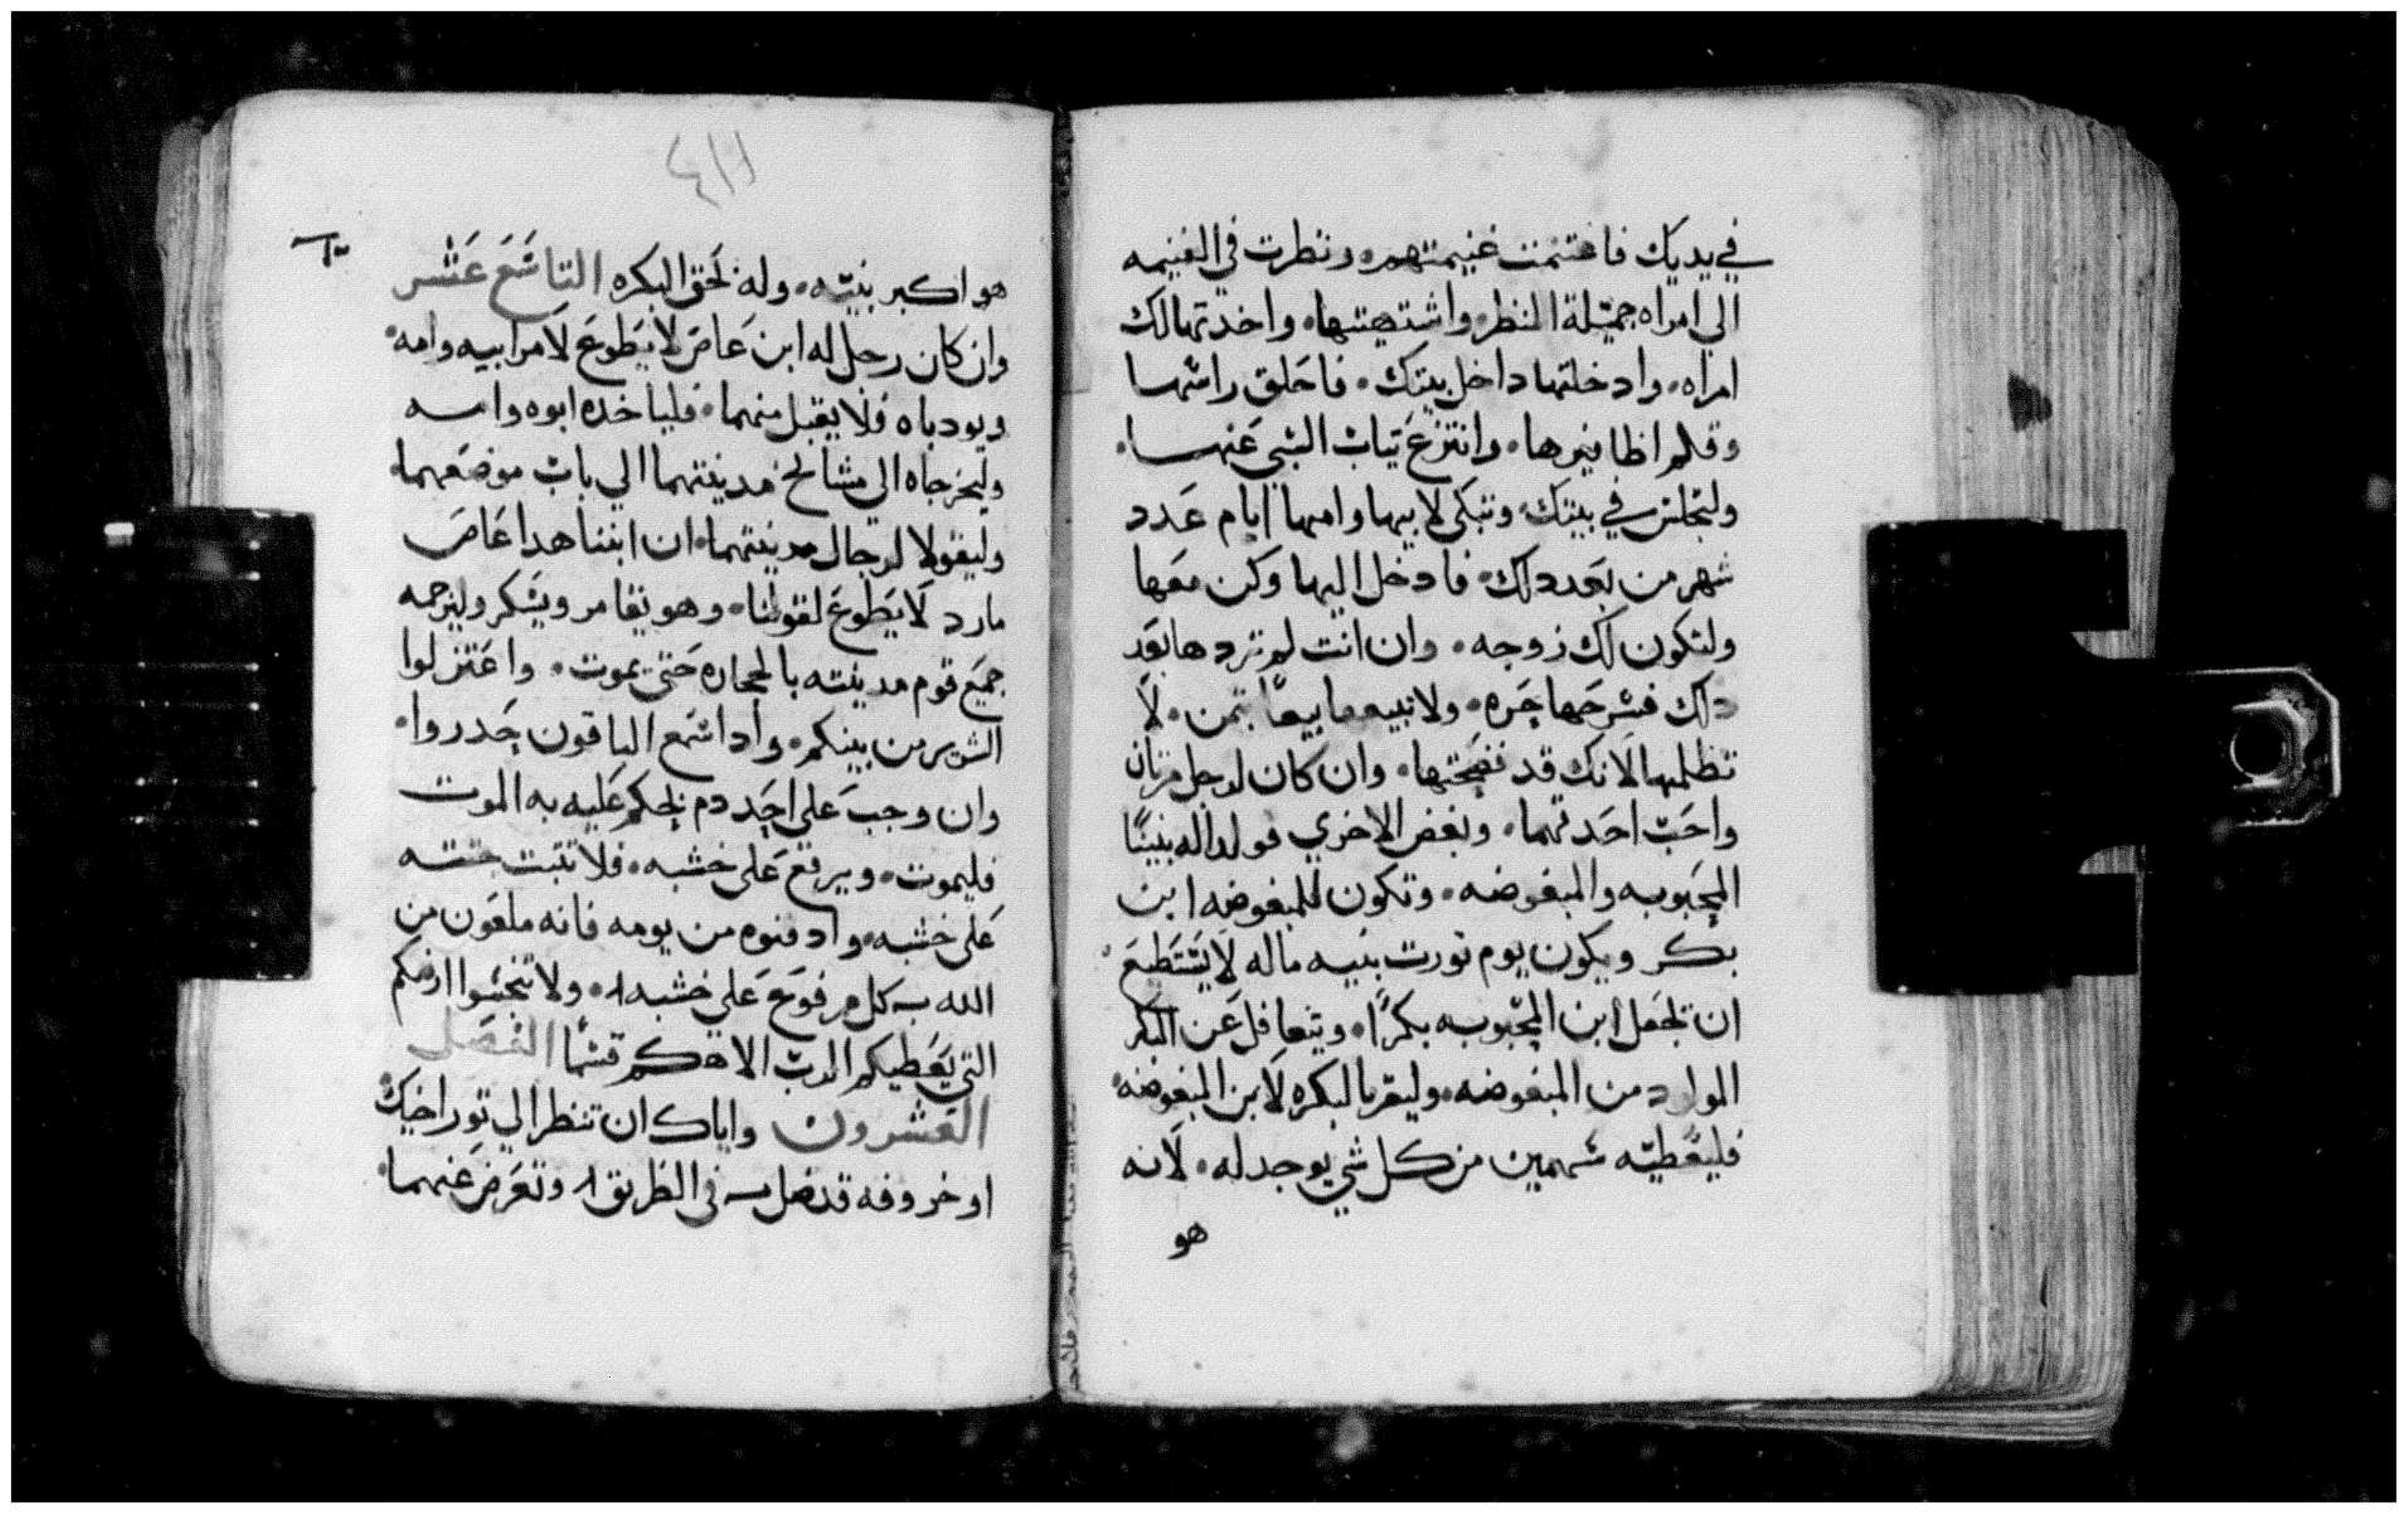 في يديك فاغتنمت غنيمتهم ونظرت في الغنيمه
الى امراه جميلة المنظر واشتهيتها واخدتها لك
امراه وادخلتها داخل بيتك فاحلق راسها
وقلم اظافيرها وانتزع تياب السبي عنها
ولتجلس في بيتك وتبكى لابيها وامها ايام عدد
شهر من بعد دلك فادخل اليها وكن معها
ولتكون لك زوجه وان انت لم تردها بعد
دلك فسرحها حره ولا تبيعها بيعا بتمن لا
تظلمها لانك قد فضحتها وان كان لرجل مرتان
واحب احدتهما وبغض الاخري فولدا له بنينا
المحبوبه والمبغوضه وتكون للمبغوضه ابن
بكر ويكون يوم تورت بنيه ماله لا يستطيع
ان يجعل ابن المحبوبه بكرا ويتغافل عن البكر
المولود من المبغوضه وليقر بالبكره لابن المبغوضه
فليعطيه سهمين من كل شي يوجد له لانه
هو
هو اكبر بنيه وله لحق البكره التاسع عشر
وان كان رجل له ابن عاص لا يطوع لامر ابيه وامه
ويودباه فلا يقبل منهما فلياخده ابوه وامه
وليخرجاه الى مشايخ مدينتهما الي باب موضعهما
وليقولا لرجال مدينتهما ان ابننا هدا عاص
مارد لا يطوع لقولنا وهو يقامر ويسكر وليرجمه
جميع قوم مدينته بالحجاره حتى يموت واعتزلوا
الشرير من بينكم وادا سمع الباقون حدروا
وان وجب على احد دم يحكم عليه به الموت
فليموت ويرفع على خشبه فلا تتبت جتته
على خشبه وادفنوه من يومه فانه ملعون من
الله كل مرفوع علي خشبه ولا تنجسوا ارضكم
التي يعطيكم الرب الاهكم قسما الفصل
العشرون واياك ان تنظر الي تور اخيك
او خروفه قد ضل في الطريق وتعرض عنهما